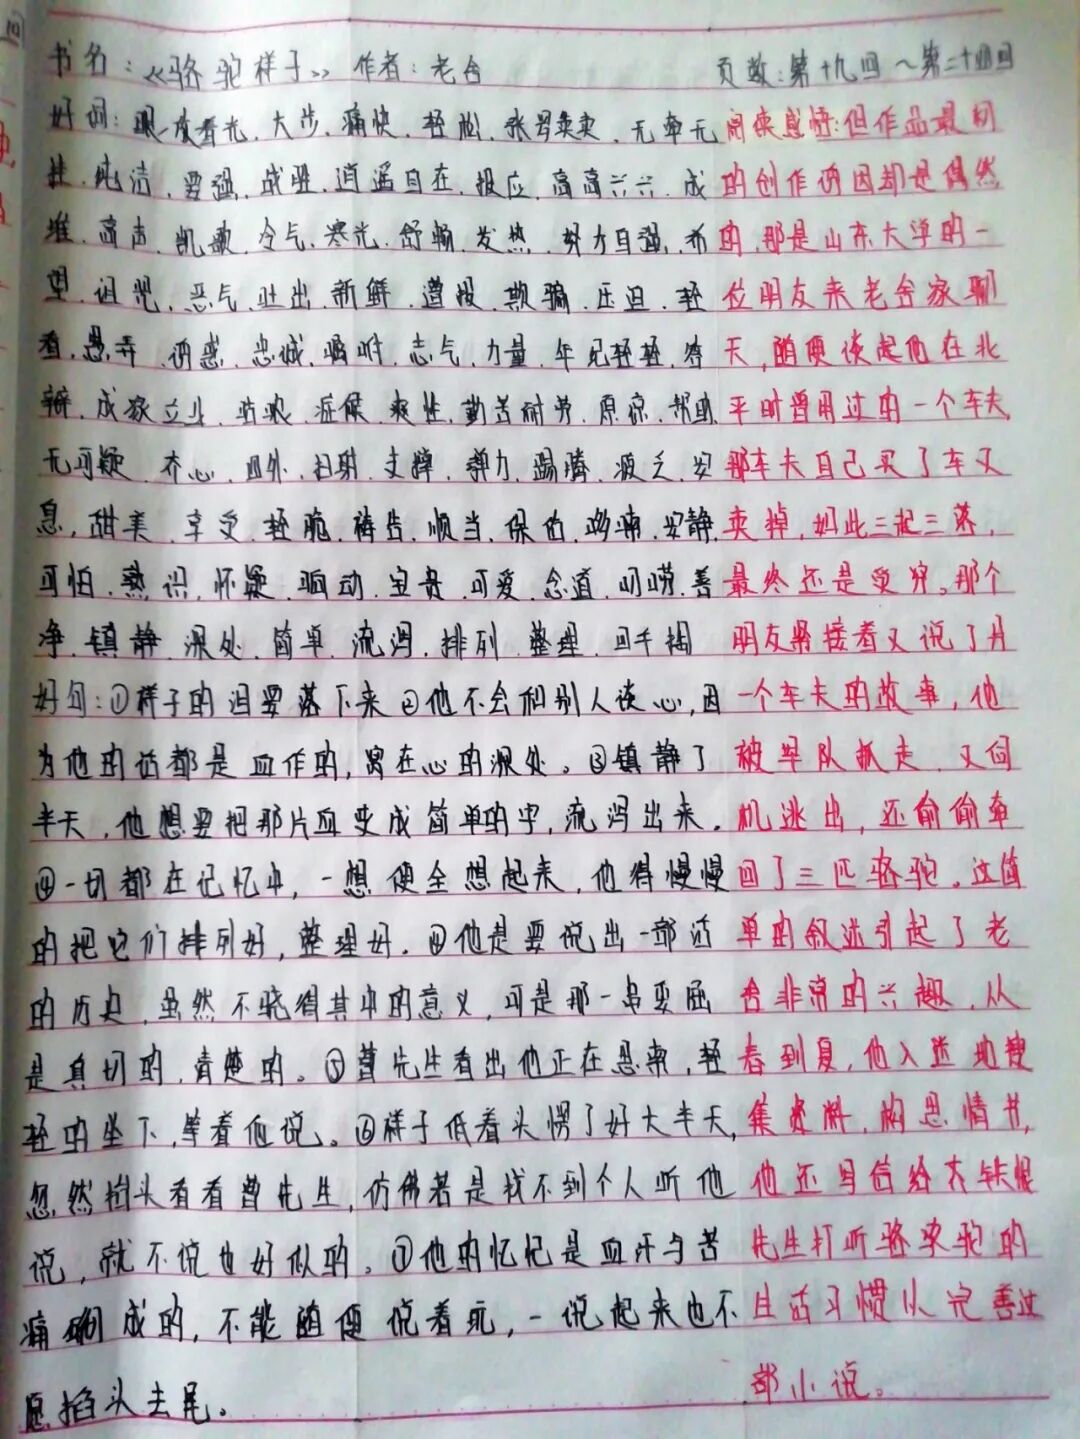 书名：《骆驼祥子》 作者：老舍 页数：第十九回～第二十四回
好词：眼皮看光、大步、痛快、轻松、张号卖卖、无牵无
挂、纯洁、要强、战胜、逍遥自在、报应、高高兴兴、成
堆、高声、凯歌、冷气、寒光、舒畅、发热、努力自强、希
望、诅咒、恶气、吐出、新鲜、遭报、欺骗、压迫、轻
看、愚弄、诱惑、忠诚、嘱咐、志气、力量、年纪轻轻、答
辩、成家立业、症候、爽性、勤苦耐劳、原谅、帮助、
无可疑、齐心、四外、扫射、支撑、弹力、踢腾、疲乏、安
息、甜美、享受、轻脆、祷告、顺当、保佑、安静、
可怕、熟识、怀疑、驱动、宝贵、可爱、念道、叨唠、善
净、镇静、深处、简单、流泻、排列、整理、回千
好句：①祥子的泪要落下来②他不会和别人谈心，因
为他的话都是血作的，窝在心的深处。③镇静了
半天，他想要把那片血变成简单的字，流泻出来。
④一切都在记忆中，一想便全想起来，他得慢慢
的把它们排列好，整理好。④他是要说出一部活
的历史，虽然不晓得其中的意义，可是那一串委屈
是真切的，清楚的。⑤曹先生看出他正在思索，轻
轻的坐下，等着他说。⑥祥子低着头愣了好大半天，
忽然抬头看看曹先生，仿佛若是找不到个人听他
说，就不说也好似的。⑦他的忆忆是血汗与苦
痛砌成的，不能随便说着玩，一说起来也不
愿掐头去尾。
阅读感悟：但作品最初
的创作诱因却是偶然
的，那是山东大学的一
位朋友来老舍家聊
天，随便谈起他在北
平时曾用过的一个车夫，
那车夫自己买了车又
卖掉，如此三起三落，
最终还是受穷。那个
朋友紧接着又说了另
一个车夫的故事，他
被军队抓走，又伺
机逃出，还偷偷牵
回了三匹骆驼。这简
单的叙述引起了老
舍非常的兴趣，从
春到夏，他入迷地搜
集资料，构思情节，
他还写信给齐铁恨
先生打听骆驼的
生活习惯以完善这
部小说。